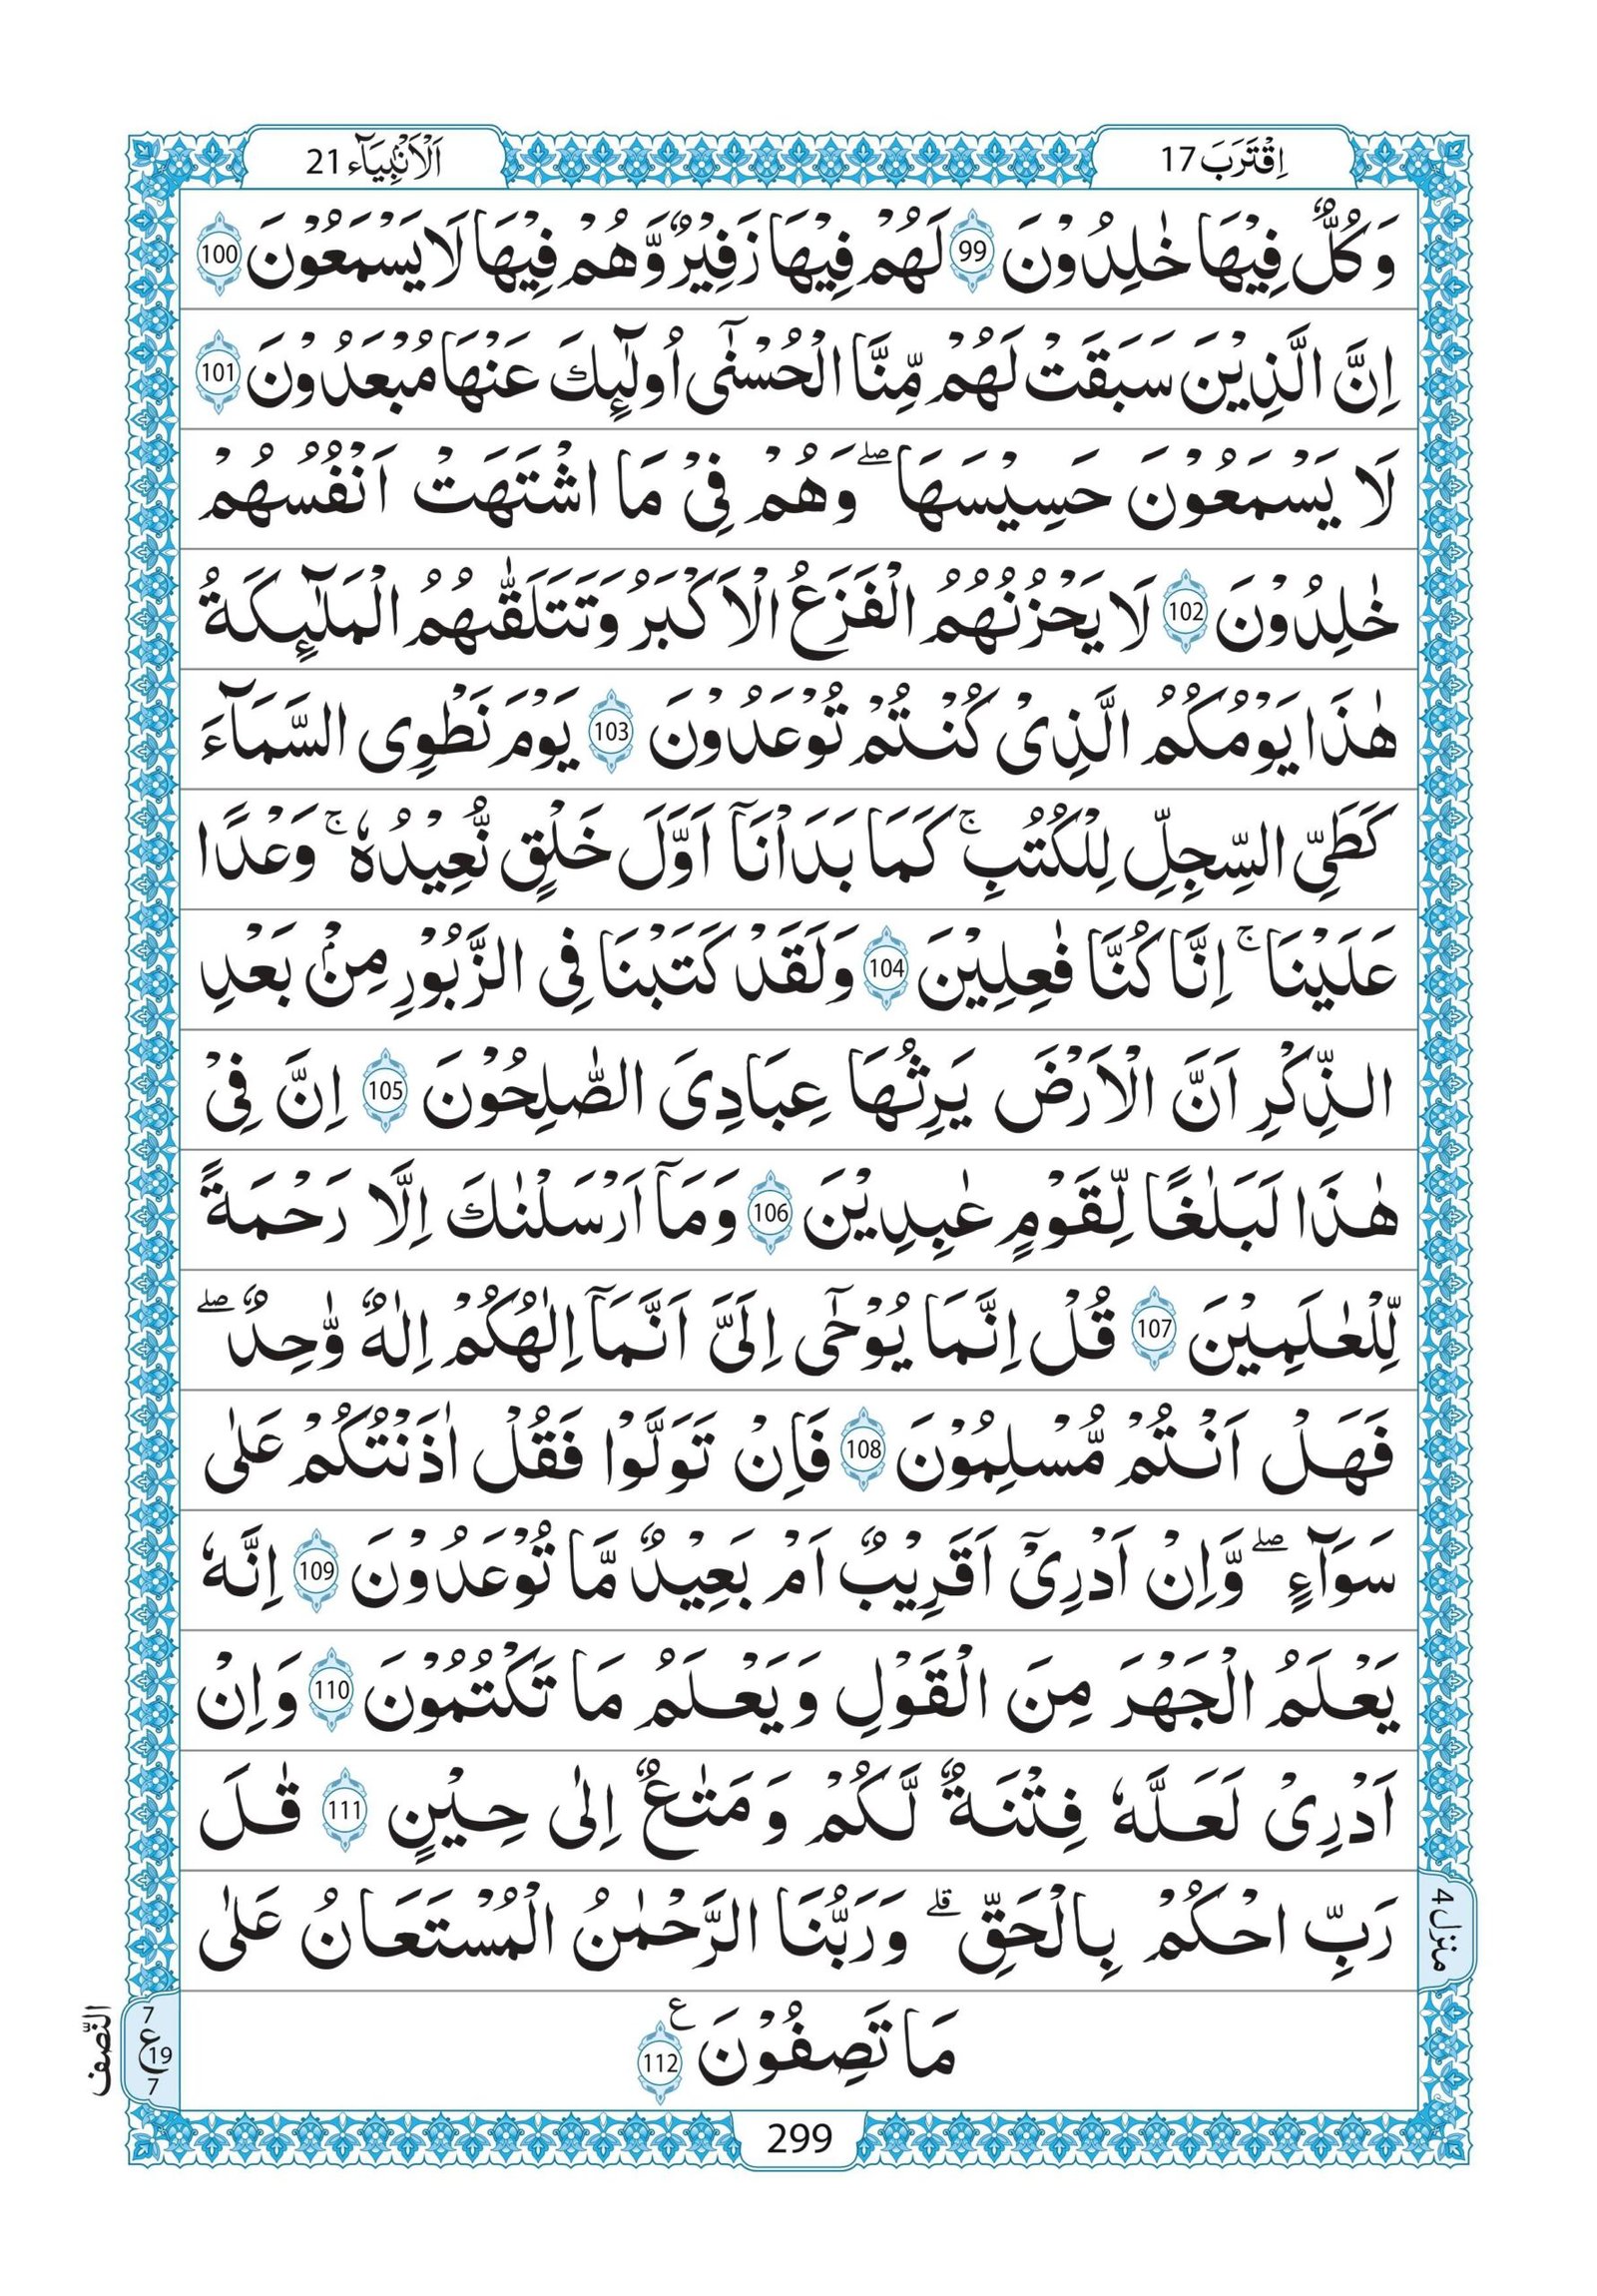 اِقْتَرَبَ 17
اَلْاَنْۢبِيَآء 21
وَكُلٌّ فِيْهَا خٰلِدُوْنَ 99 لَهُمْ فِيْهَا زَفِيْرٌ وَّهُمْ فِيْهَا لَا يَسْمَعُوْنَ 100
اِنَّ الَّذِيْنَ سَبَقَتْ لَهُمْ مِّنَّا الْحُسْنٰٓى اُولٰٓئِكَ عَنْهَا مُبْعَدُوْنَ 101
لَا يَسْمَعُوْنَ حَسِيْسَهَا ۖ وَهُمْ فِيْ مَا اشْتَهَتْ اَنْفُسُهُمْ
خٰلِدُوْنَ 102 لَا يَحْزُنُهُمُ الْفَزَعُ الْاَكْبَرُ وَتَتَلَقّٰىهُمُ الْمَلٰٓئِكَةُ
هٰذَا يَوْمُكُمُ الَّذِيْ كُنْتُمْ تُوْعَدُوْنَ 103 يَوْمَ نَطْوِى السَّمَآءَ
كَطَيِّ السِّجِلِّ لِلْكُتُبِ ۚ كَمَا بَدَاْنَآ اَوَّلَ خَلْقٍ نُّعِيْدُهٗ ۚ وَعْدًا
عَلَيْنَا ۚ اِنَّا كُنَّا فٰعِلِيْنَ 104 وَلَقَدْ كَتَبْنَا فِى الزَّبُوْرِ مِنْۢ بَعْدِ
الذِّكْرِ اَنَّ الْاَرْضَ يَرِثُهَا عِبَادِيَ الصّٰلِحُوْنَ 105 اِنَّ فِيْ
هٰذَا لَبَلٰغًا لِّقَوْمٍ عٰبِدِيْنَ 106 وَمَآ اَرْسَلْنٰكَ اِلَّا رَحْمَةً
لِّلْعٰلَمِيْنَ 107 قُلْ اِنَّمَا يُوْحٰٓى اِلَيَّ اَنَّمَآ اِلٰهُكُمْ اِلٰهٌ وَّٰحِدٌ ۖ
فَهَلْ اَنْتُمْ مُّسْلِمُوْنَ 108 فَاِنْ تَوَلَّوْا فَقُلْ اٰذَنْتُكُمْ عَلٰى
سَوَآءٍ ۖ وَّاِنْ اَدْرِيْٓ اَقَرِيْبٌ اَمْ بَعِيْدٌ مَّا تُوْعَدُوْنَ 109 اِنَّهٗ
يَعْلَمُ الْجَهْرَ مِنَ الْقَوْلِ وَيَعْلَمُ مَا تَكْتُمُوْنَ 110 وَاِنْ
اَدْرِيْ لَعَلَّهٗ فِتْنَةٌ لَّكُمْ وَمَتٰعٌ اِلٰى حِيْنٍ 111 قٰلَ
رَبِّ احْكُمْ بِالْحَقِّ ۗ وَرَبُّنَا الرَّحْمٰنُ الْمُسْتَعَانُ عَلٰى
مَا تَصِفُوْنَ ع 112
منزل 4
النّصف
7
ع 19
7
299